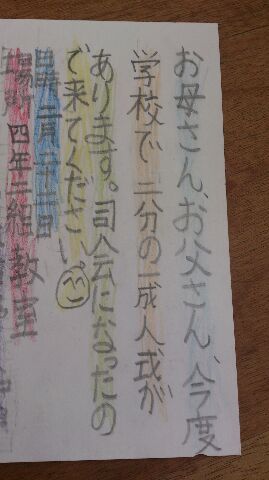 お母さん、お父さん、今度
学校で二分の一成人式が
あります。司会になったの
で来てください。
日時 二月二十一日
場所 四年二組教室